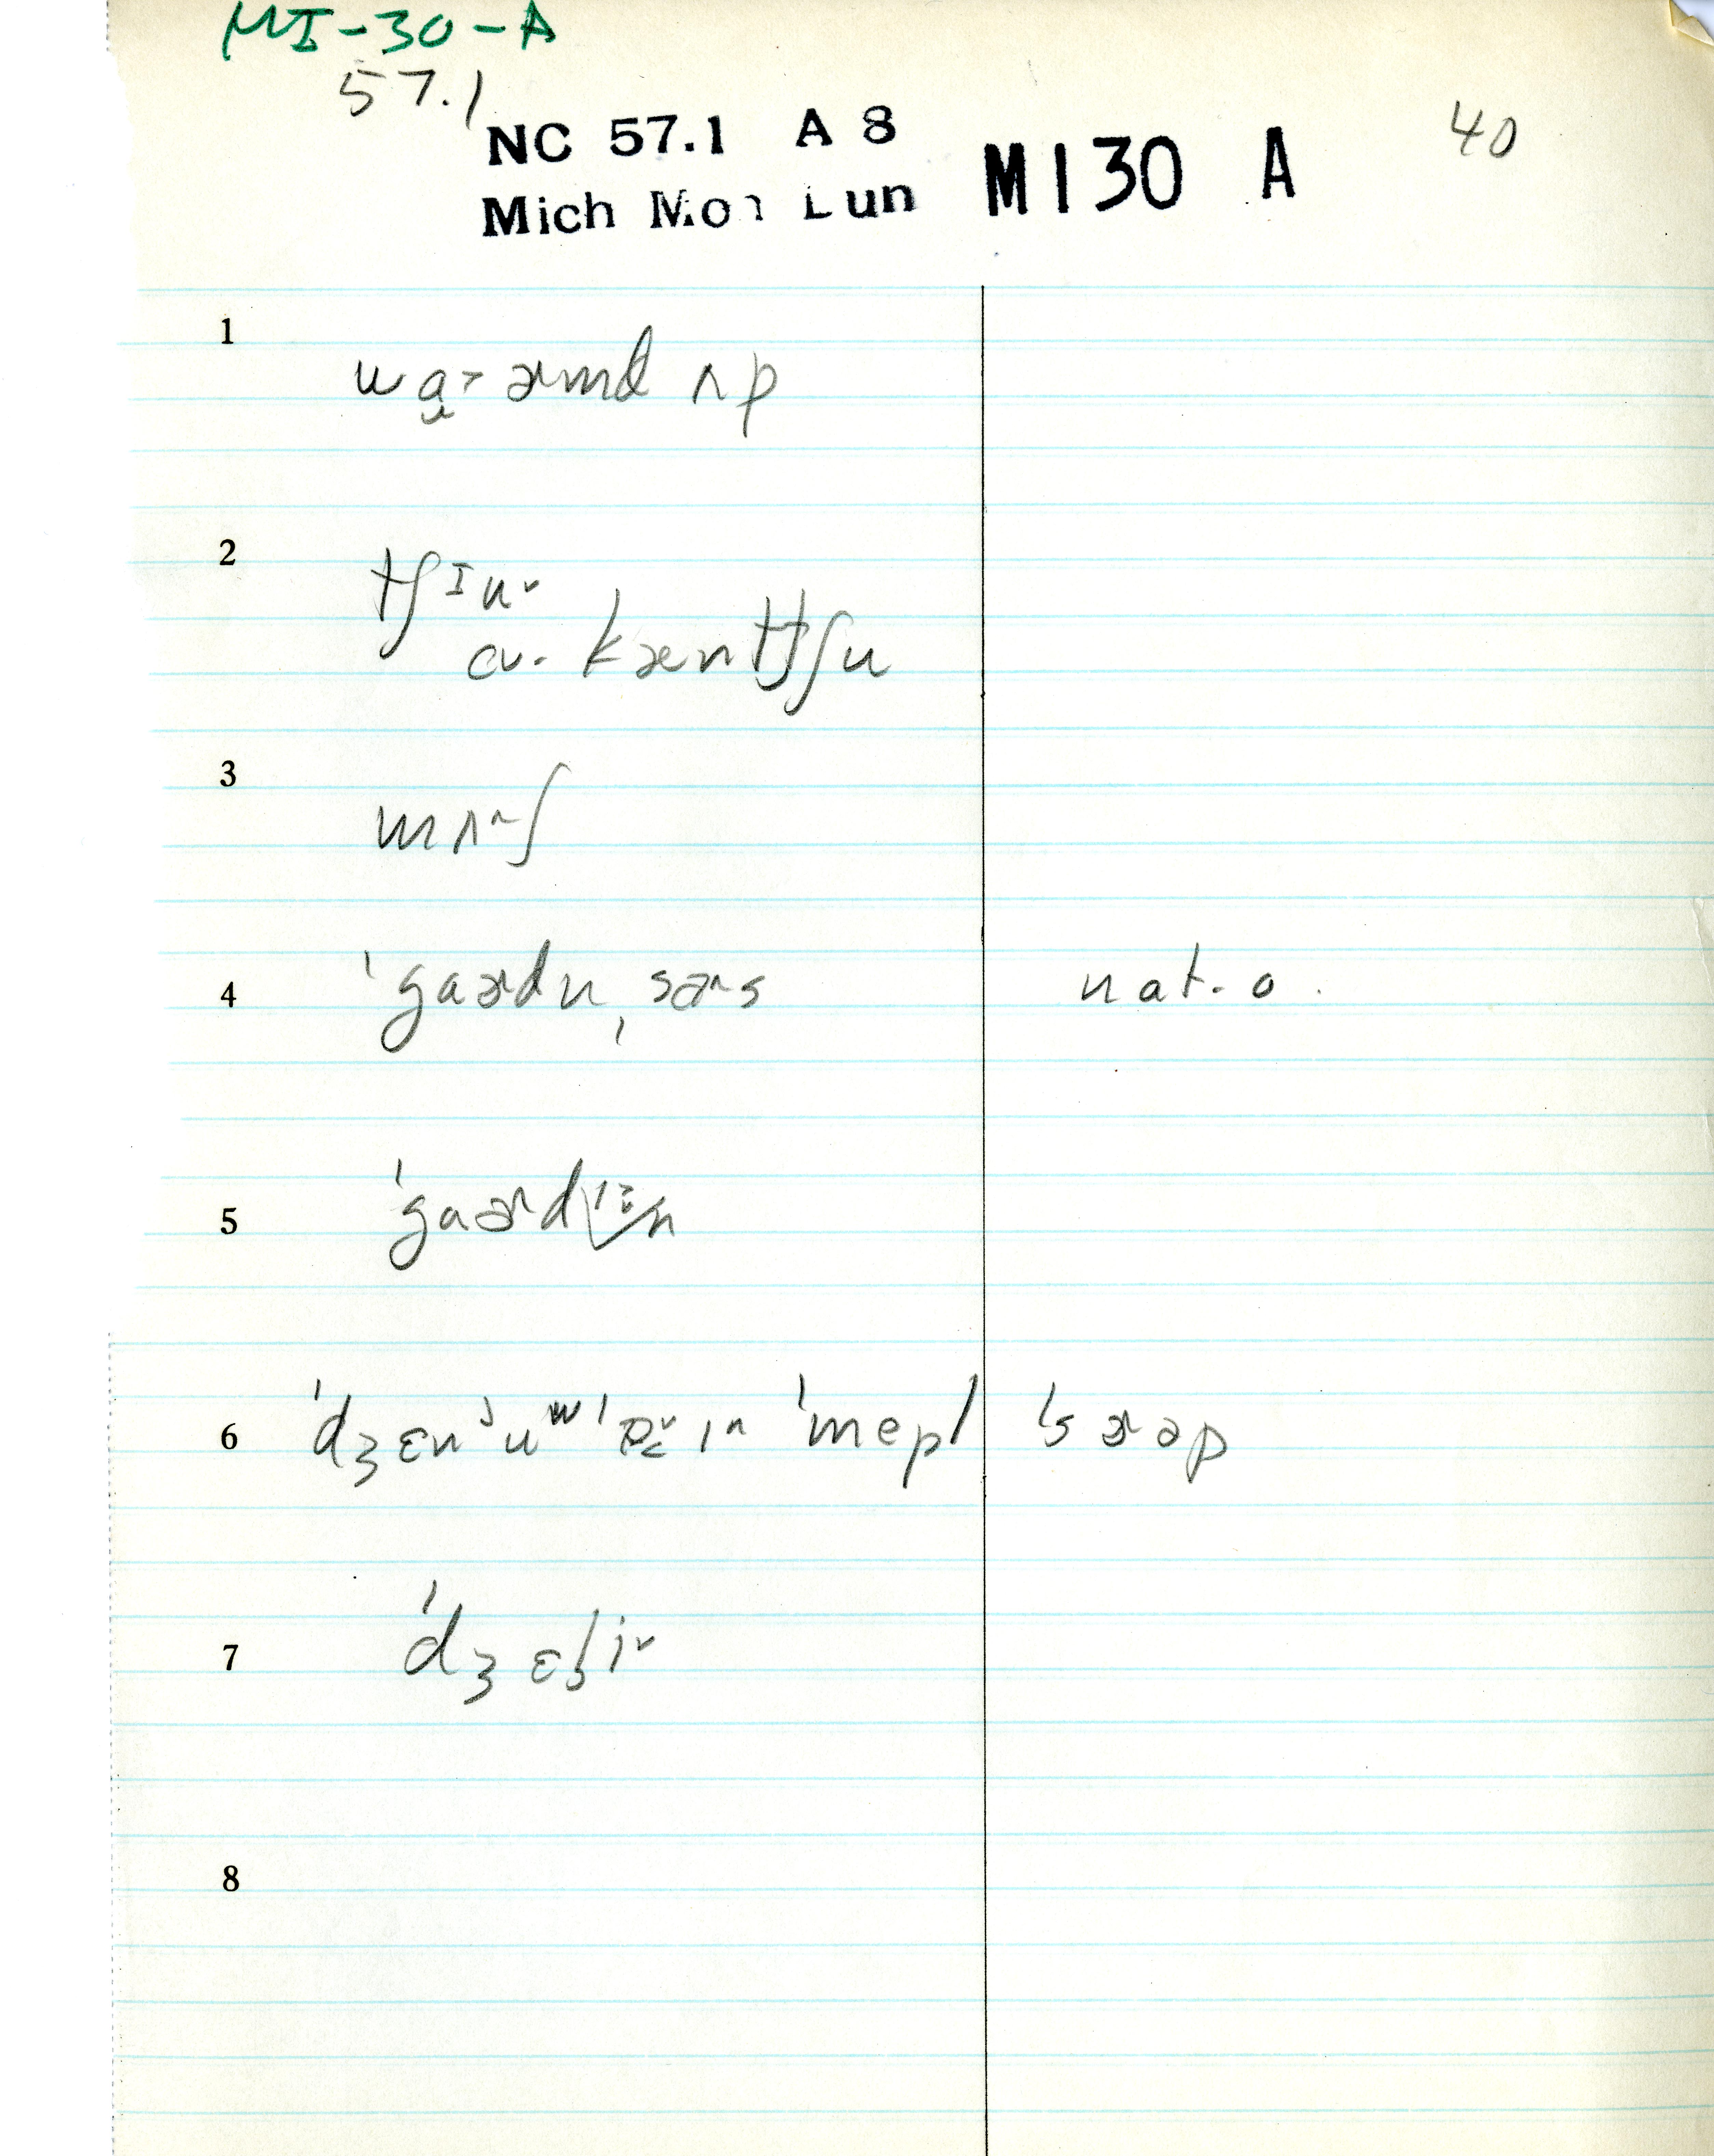 MI-30-A
57.1
NC 57.1 A 8
Mich Mon Lun MI30 A
40
1
wa̬˃ ɚmd ʌp
2
tʃɪu˅
a. kæntʃu
3
mʌ^ʃ
4
ˈgaɚdn̩ sæ^s nat. o.
5
ˈgaɚd
6
ˈdʒɛnʲuʷ ɪ^n ˈmepl ˈsɚəp
7
ˈdʒɛli˅
8